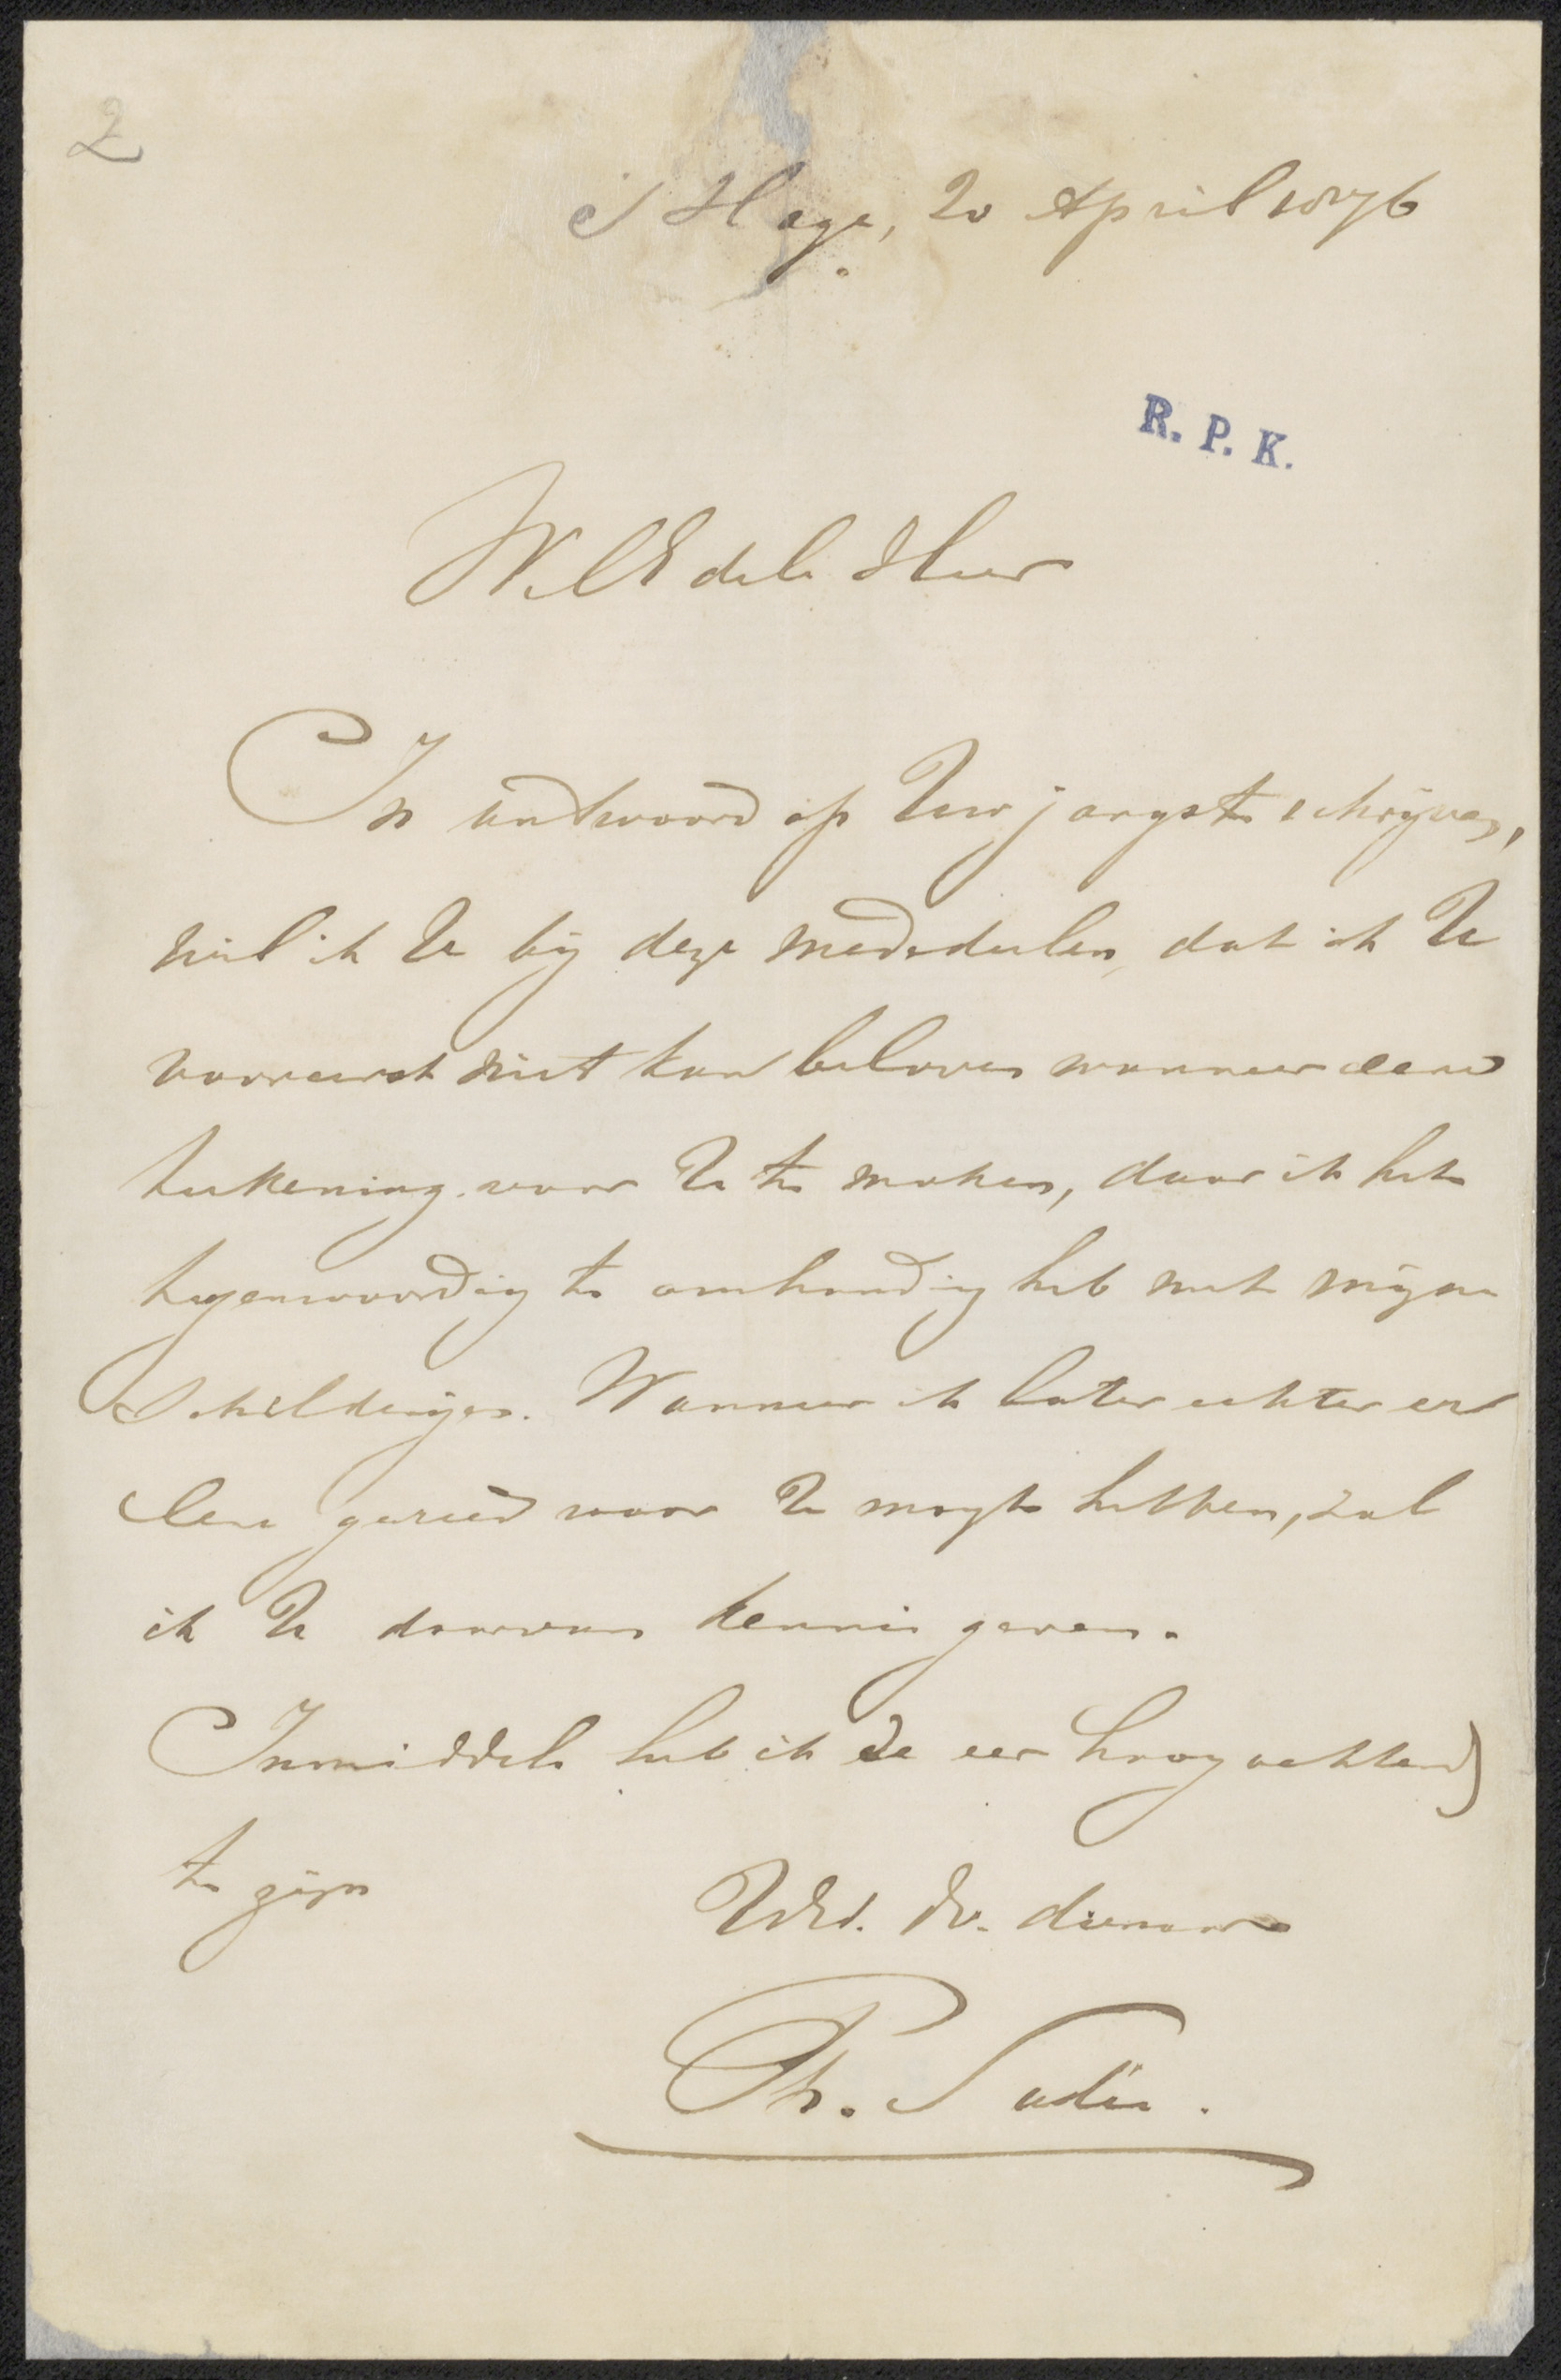 2
's Hage, 20 April 1876
R. P. K.
WelEdele Heer
In andwoord op Uw jongste schrijven,
wil ik U bij deze mededeelen, dat ik U
vooreerst niet kan beloven wanneer eene
teekening voor U te maken, daar ik het
tegenwoordig te omhandig heb met mijne
Schilderijen. Wanneer ik later echter er
eene gereed voor U mogt hebben, zal
ik U daarvan kennis geven.
Inmiddels heb ik de eer hoogachtend
te zijn
UEd. Dv. dienaar
Ph. Sadée.